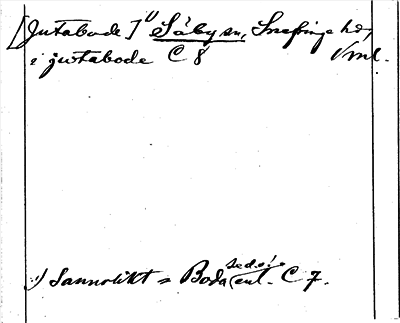 [Jutabode]¹⁾ Säby sn, Snefringe hd,
Vml.
i jutabode C 8
¹⁾ Sannolikt = Boda enl. C 7.